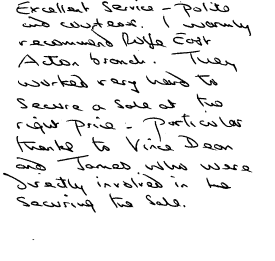 Excellent Service - polite
and courteous. I warmly
recommend Rolfe East
Acton branch. They
worked very hard to
Secure a Sale at the
right price - particular
thanks to Vince Dean
and James who were
directly involved in the
Securing the Sale.